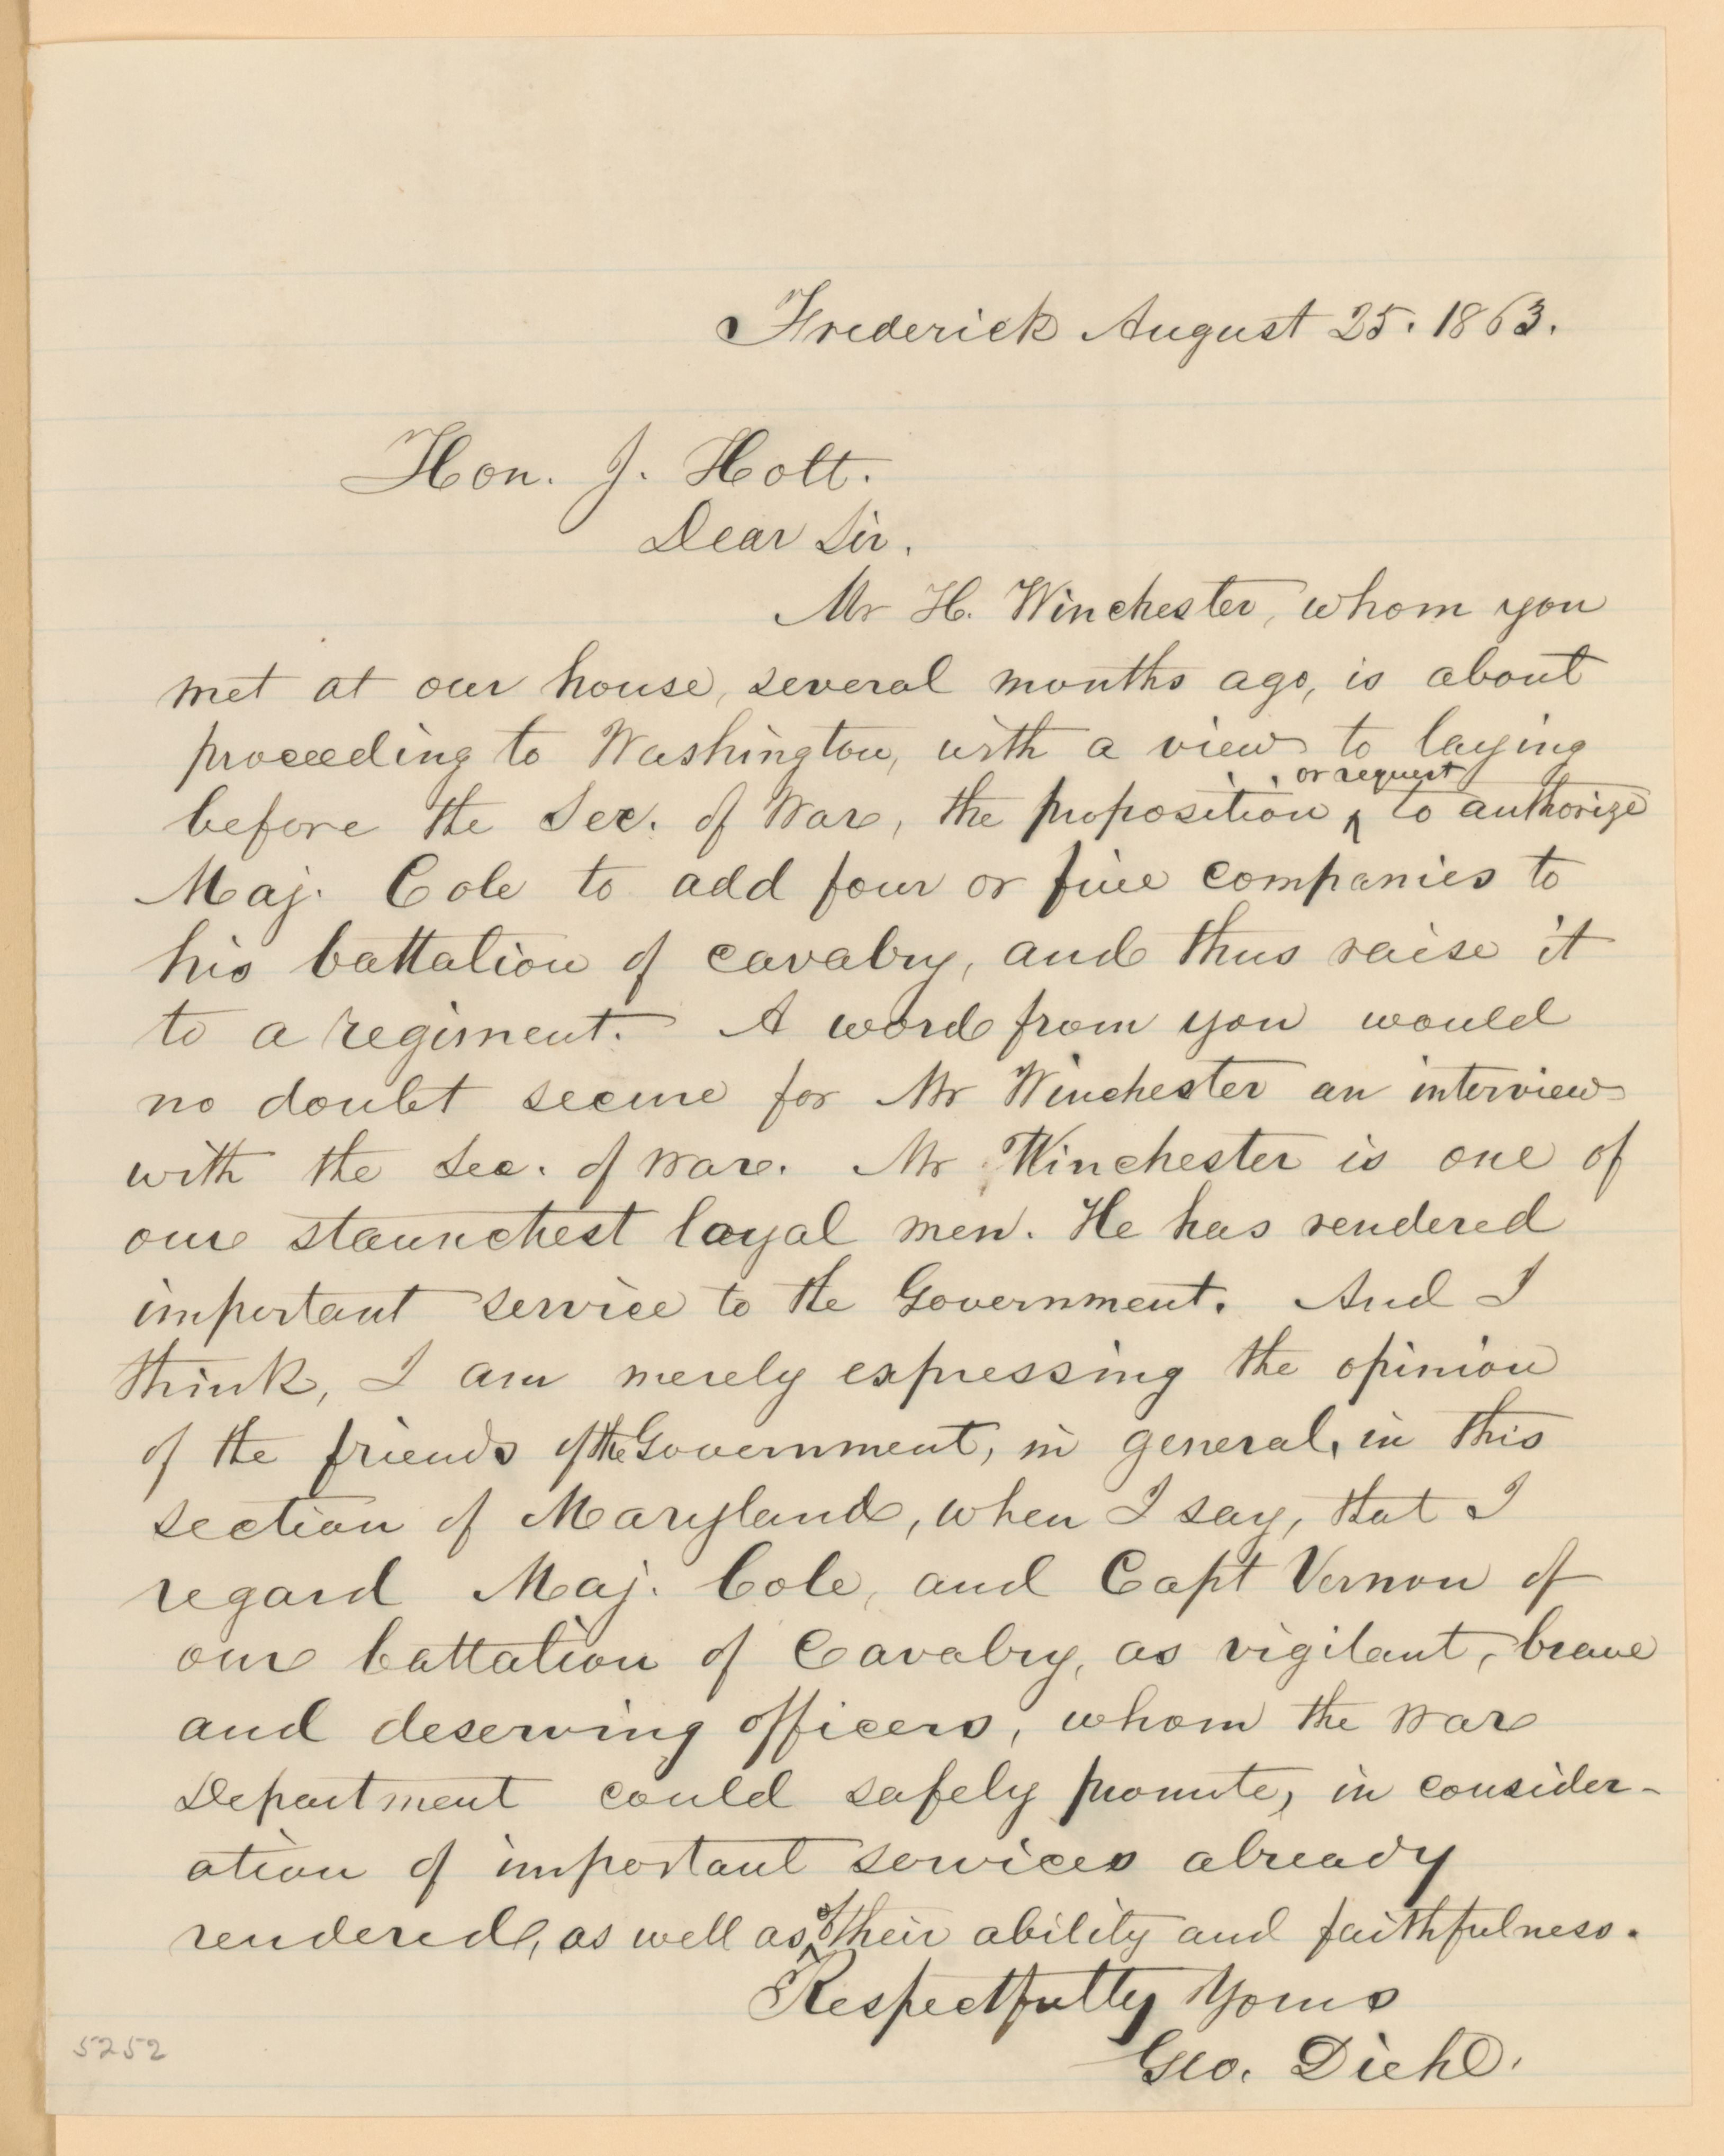 Frederick August 25. 1863.
Hon. J. Holt.
Dear Sir.
Mr H. Winchester, whom you
met at our house, several months ago, is about
proceeding to Washington, with a view to laying
or request
before the Sec. of War, the proposition ^ to authorize
Maj. Cole to add four or five companies to
his battalion of cavalry, and thus raise it
to a regiment. A word from you would
no doubt secure for Mr Winchester an interview
with the Sec. of War. Mr Winchester is one of
our staunchest loyal men. He has rendered
important service to the Government. And I
think, I am merely expressing the opinion
of the friends of the Government, in general, in this
section of Maryland, when I say, that I
regard Maj. Cole, and Capt Vernon of
our battalion of Cavalry, as vigilant, brave
and deserving officers, whom the War
Department could safely promote, in consider-
ation of important services already
rendered, as well as ^ of their ability and faithfulness.
Respectfully Yours
Geo. Diehl.
5252